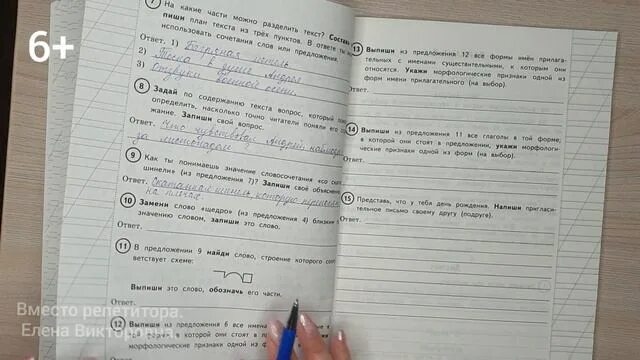 6+
7 На какие части можно разделить текст? Составь
пиши план текста из трёх пунктов. В ответе ты
использовать сочетания слов или предложения.
Ответ. 1)
2) Тоска в душе Андрея
3) военной осени.
8 Задай по содержанию текста вопрос, который
определить, насколько точно читатели поняли его
жание. Запиши свой вопрос.
Ответ. чувствовал Андрей, наблюдая
за листопадом
9 Как ты понимаешь значение словосочетания «со
шинели» (из предложения 7)? Запиши своё объяснение
Ответ. Скатанная шинель, которую
на плечах.
10 Замени слово «щедро» (из предложения 4) близким
значению словом, запиши это слово.
Ответ.
11 В предложении 9 найди слово, строение которого соот
ветствует схеме:
Выпиши это слово, обозначь его части.
Ответ.
12 Выпиши из предложения 6 все имена
в которой они стоят в
морфологические признаки одной из форм
13 Выпиши из предложения 12 все формы имён прилага-
тельных с именами существительными, к которым они
относятся. Укажи морфологические признаки одной из
форм имени прилагательного (на выбор).
Ответ.
14 Выпиши из предложения 11 все глаголы в той форме,
в которой они стоят в предложении, укажи морфологи-
ческие признаки одной из форм (на выбор).
Ответ.
15 Представь, что у тебя день рождения. Напиши пригласи-
тельное письмо своему другу (подруге).
Ответ.
Вместо репетитора.
Елена Викторовна.